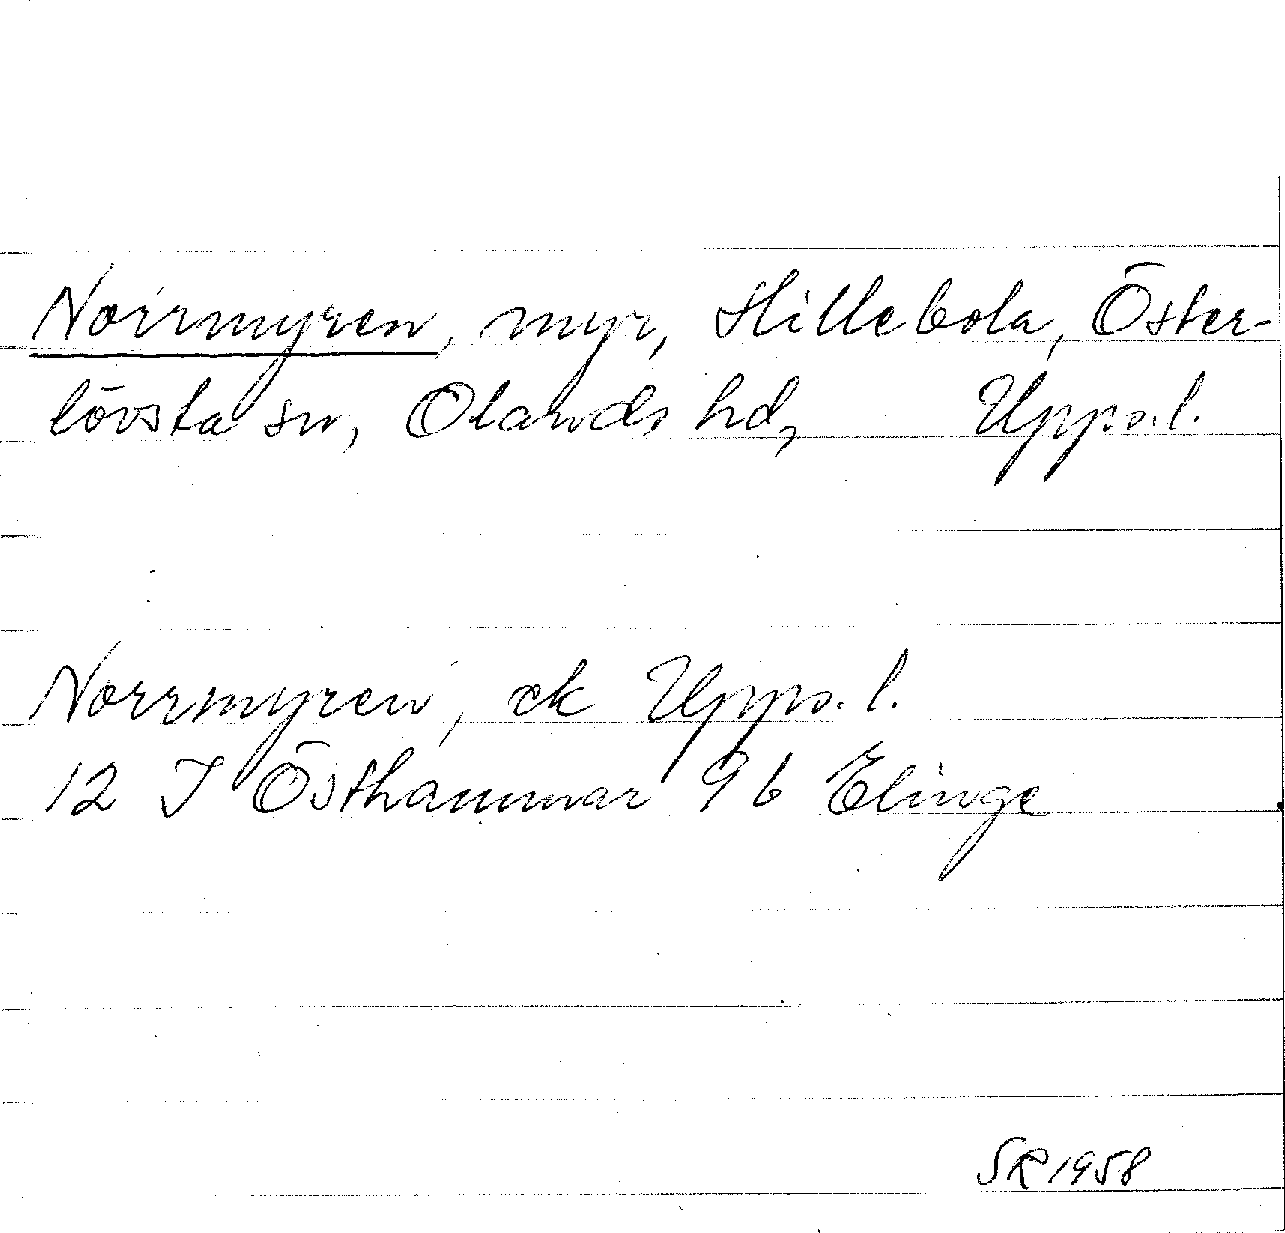 Norrmyren, myr, Hillebola, Öster-
lövsta sn, Olands hd, Upps.l.
Norrmyren, ek Upps.l.
12 I Östhammar 9b Elinge
SR 1958